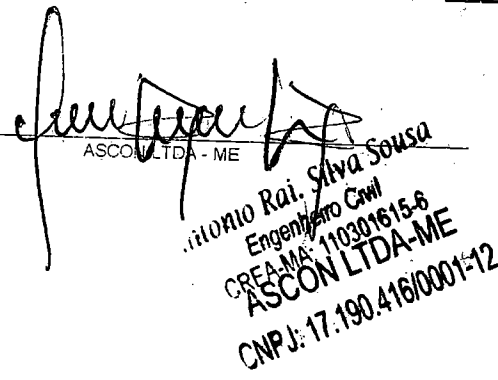 ASCON LTDA - ME
Rai. Silva Sousa
Engenheiro Civil
CREA-MA: 110301615-6
ASCON LTDA-ME
CNPJ: 17.190.416/0001-12